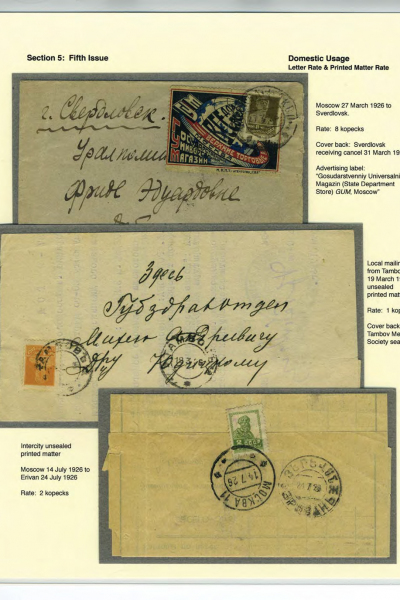 Section 5: Fifth Issue
Domestic Usage
Letter Rate & Printed Matter Rate
Moscow 27 March 1926 to
Sverdlovsk.
Rate: 8 kopecks
Cover back: Sverdlovsk
receiving cancel 31 March 19
Advertising label:
"Gosudarstvenniy Universalni
Magazin (State Department
Store) GUM, Moscow"
г. Свердловск.
ГУМ
МАГАЗИН
Фриде Эдуардовне
Local mailin
from Tambo
19 March 1
unsealed
printed mat
Rate: 1 kop
Cover back
Tambov Me
Society sea
Здесь
Губздравотдел
Intercity unsealed
printed matter
Moscow 14 July 1926 to
Erivan 24 July 1926
Rate: 2 kopecks
МОСКВА 11
14.7.26